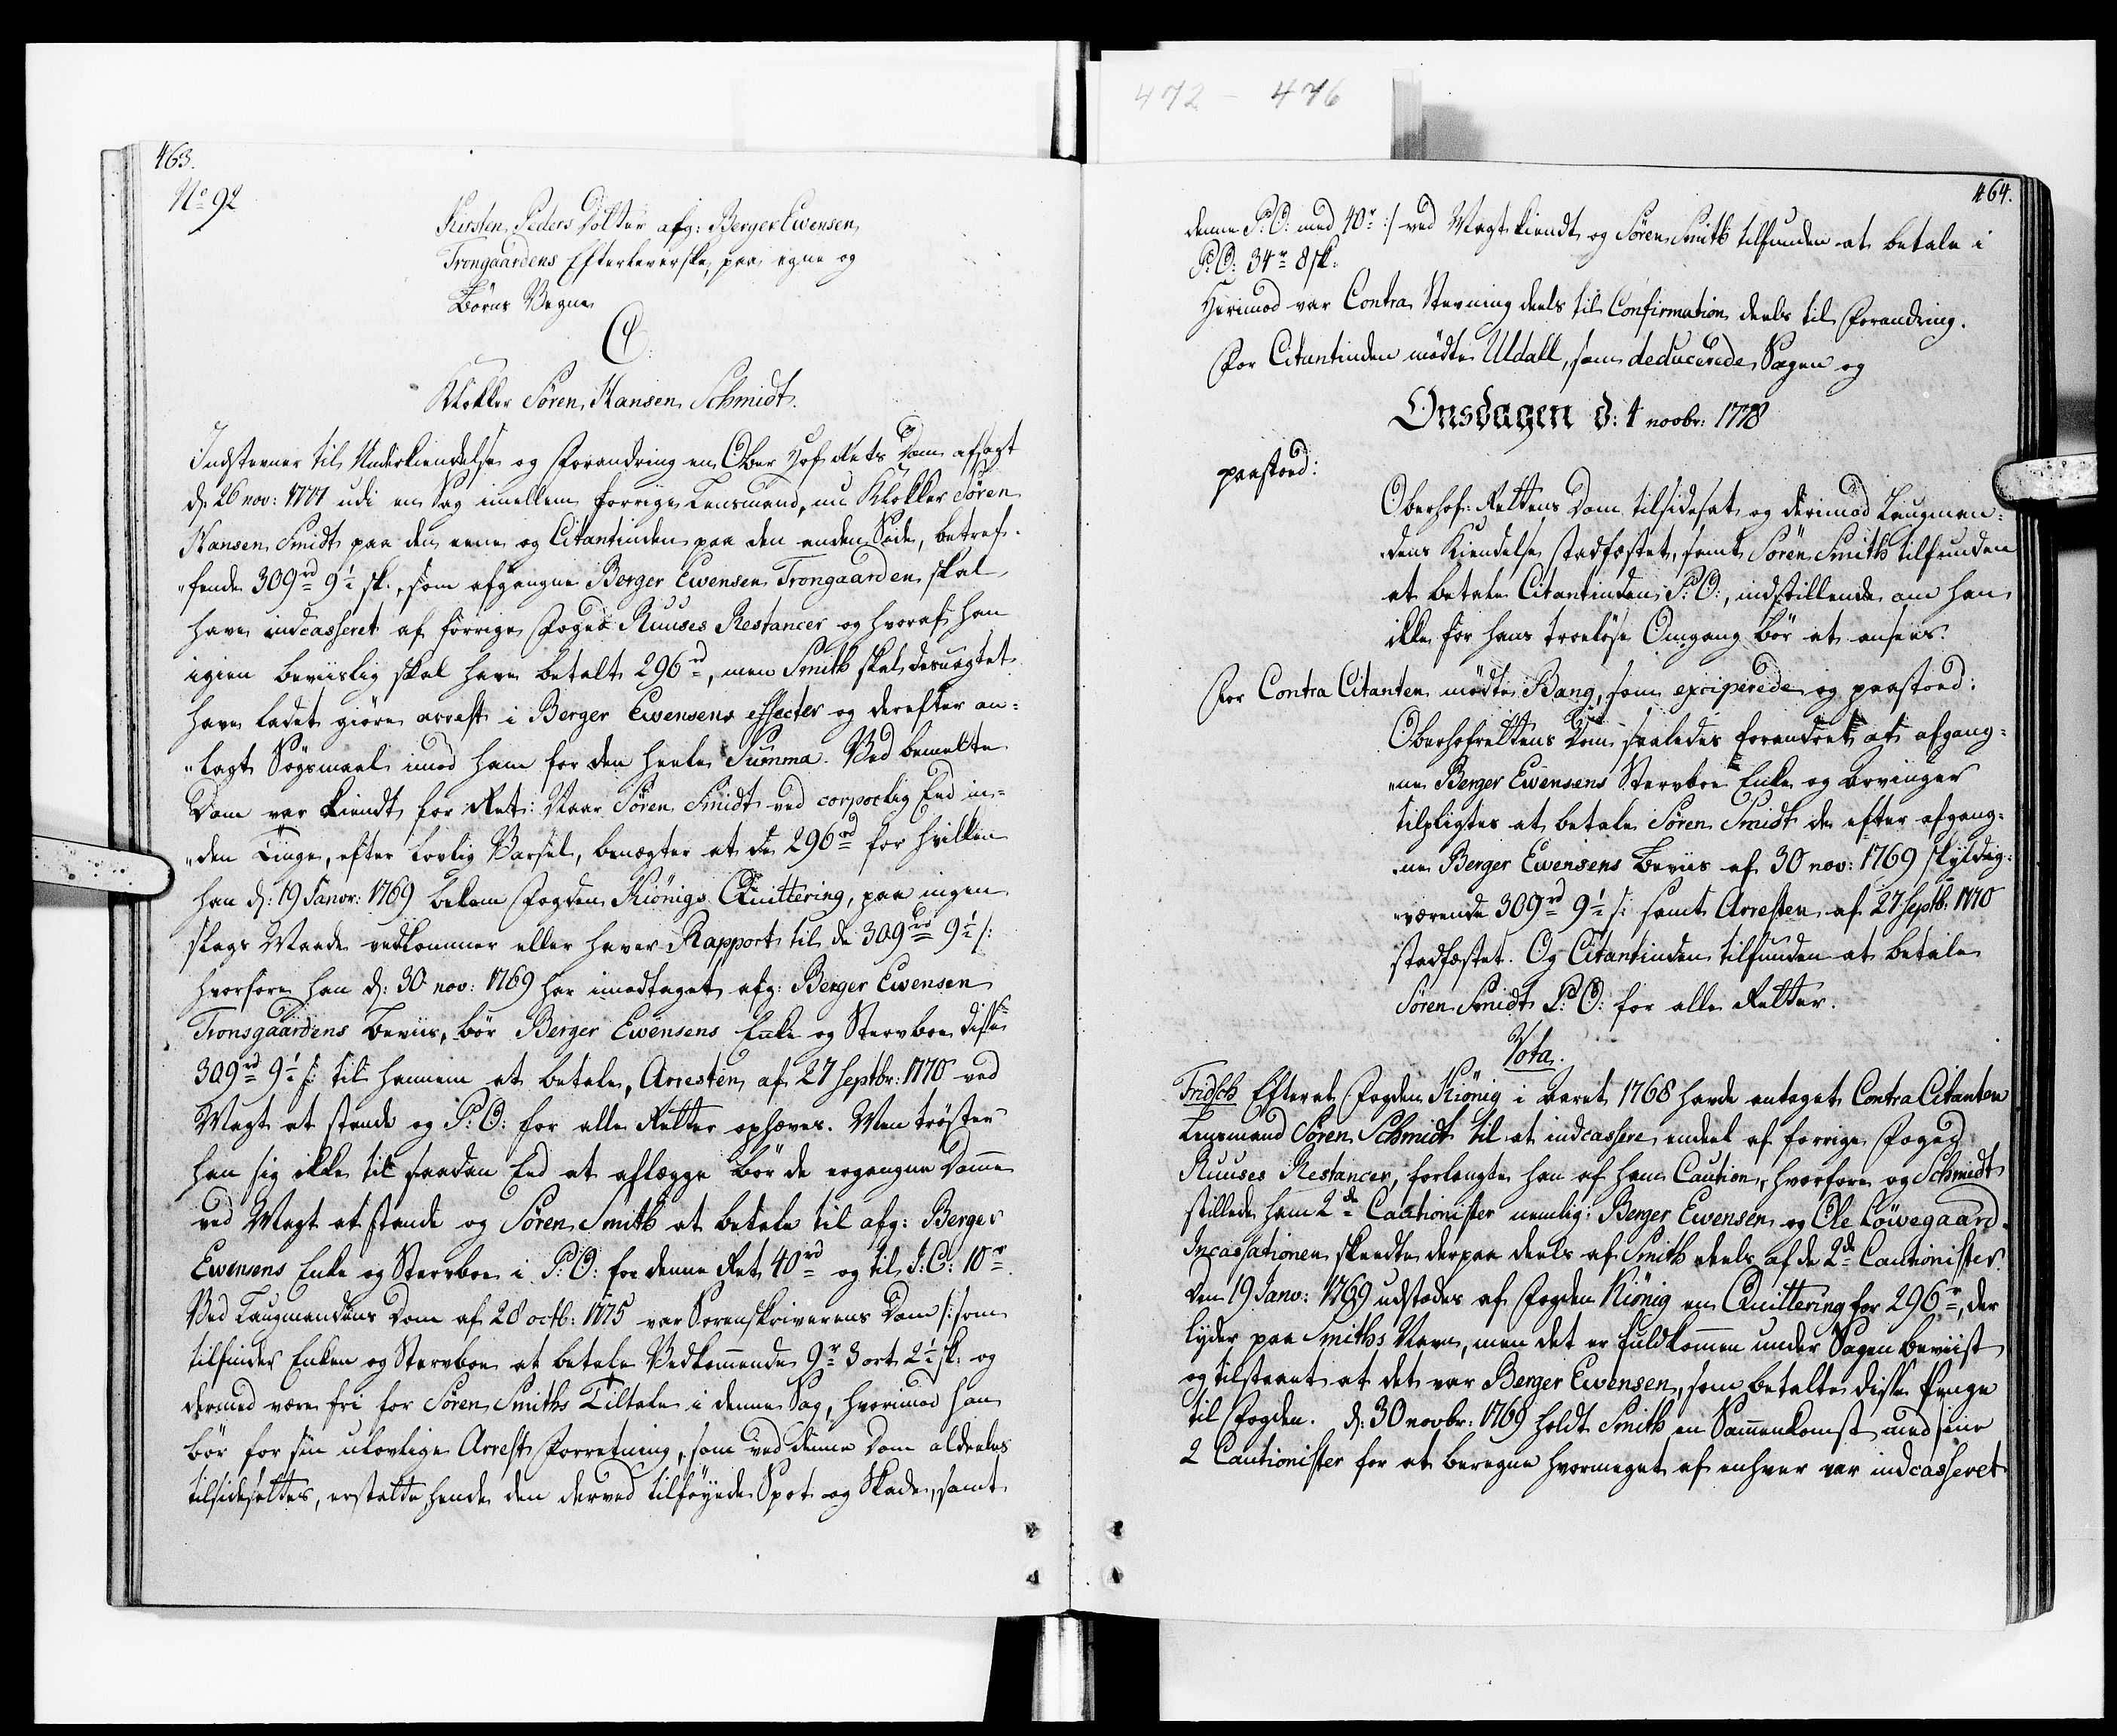 472 - 476
463.
No 92
Kirsten Peders dotter afg: Berger Ewensen
Trongaardens Efterleverske, paa egne og
Børns Vegne
C/
Klokker Søren Hansen Schmidt.
Indstevner til Underkiendelse og Forandring en Ober Hof Rets Dom afsagt
d: 26 nov: 1777 udi en Sag imellem forrige Lensmand, nu Klokker Søren
Hansen Smidt paa den eene og Citantinden paa den anden Side, betref-
„fende 309rd 9½ sk., som afgangne Berger Ewensen Trongaarden skal
have indcasseret af forrige Foged Ruuses Restancer og hvoraf han
igien beviislig skal have betalt 296rd, men Smith skal desuagtet
have ladet giøre arrest i Berger Ewensens effecter og derefter an-
„lagt Søgsmaal imod ham for den heele Summa. Ved bemelte
Dom var kiendt for Ret: Naar Søren Smidt ved corporlig Eed in-
„den Tinge, efter lovlig Varsel, benægter at de 296rd for hvilken
han d: 19 Janvr: 1769 bekom Fogden Kiönigs Quittering, paa ingen
slags Maade vedkommer eller haver Rapport til de 309rd 9½ s:
hvorfore han d: 30 nov: 1769 har imodtaget afg: Berger Ewensen
Tronsgaardens Beviis, bør Berger Ewensens Enke og Stervboe disse
309rd 9½ s: til hannem at betale, Arresten af 27 Septbr: 1770 ved
Magt at stande og P: O: for alle Retter ophæves. Men trøster
han sig ikke til saadan Eed at aflægge bør de ergangne Domme
ved Magt at stande og Søren Smith at betale til afg: Berger
Ewensens Enke og Stervboe i P: O: for denne Ret 40rd og til J: C: 10r.
Ved Laugmandens Dom af 28 octb: 1775 var Sorenskriverens Dom /: som
tilfinder Enken og Stervboe at betale Vedkommende 9r 3 ort 2½ sk: og
dermed være fri for Søren Smiths Tiltale i denne Sag, hvorimod han
bør for sin ulovlige Arrest Forretning, som ved denne Dom aldeeles
tilsidesættes, erstatte hende den derved tilføyede Spot og Skade, samt
464.
denne P: O: med 40r :/ ved Magt kiendt og Søren Smith tilfunden at betale i
P: O: 34r 8 sk:
Herimod var Contra Stevning deels til Confirmation deels til Forandring.
For Citantinden mødte Udall, som deducerede Sagen og
Onsdagen d: 4 novbr: 1778
paastoed:
Oberhof-Rettens Dom tilsidesat og derimod Laugman-
„dens Kiendelse stadfæstet, samt Søren Smith tilfunden
at betale Citantinden P: O:, indstillende om han
ikke for hans troeløse Omgang bør at ansees.
For Contra Citanten mødte Bang, som exciperede og paastoed:
Oberhofrettens Dom saaledes forandret at afgang-
„ne Berger Ewensens Stervboe Enke og Arvinger
tilpligtes at betale Søren Smidt de efter afgang-
„ne Berger Ewensens Beviis af 30 nov: 1769 skyldig-
„værende 309rd 9½ s: samt Arresten af 27 Septb: 1770
stadfæstet. Og Citantinden tilfunden at betale
Søren Smidt P: O: for alle Retter.
Vota.
Fridsch Efterat Fogden Kiönig i Aaret 1768 havde antaget Contra Citanten
Lensmand Søren Schmidt til at indcassere endeel af forrige Foged
Ruuses Restancer, forlangte han af ham Caution, hvorfore og Schmidt
stillede ham 2de Cautionister nemlig: Berger Ewensen og Ole Löwegaard.
Incassationen skeedte derpaa deels af Smith deels af de 2de Cautionister.
Den 19 Janv: 1769 udstædes af Fogden Kiönig en Quittering for 296r, der
lyder paa Smiths Navn, men det er fuldkommen under Sagen beviist
og tilstaaet at det var Berger Ewensen, som betalte disse Penge
til Fogden. d: 30 novbr: 1769 holdt Smith en Sammenkomst med sine
2 Cautionister for at beregne hvormeget af enhver var indcasseret